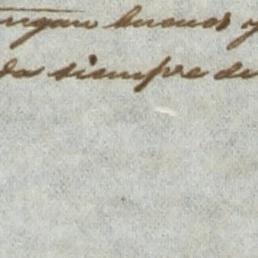 tengan buenos y
da siempre de